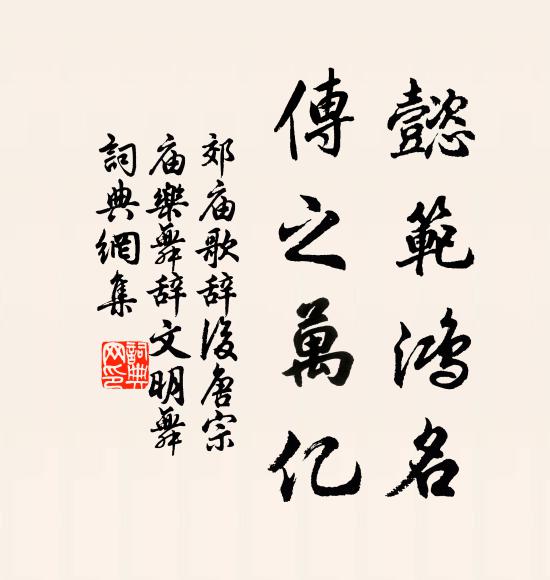 懿範鴻名
傳之萬亿
郊庙歌辞後唐宗
庙樂舞辞文明舞
詞典網集
詞典
网印